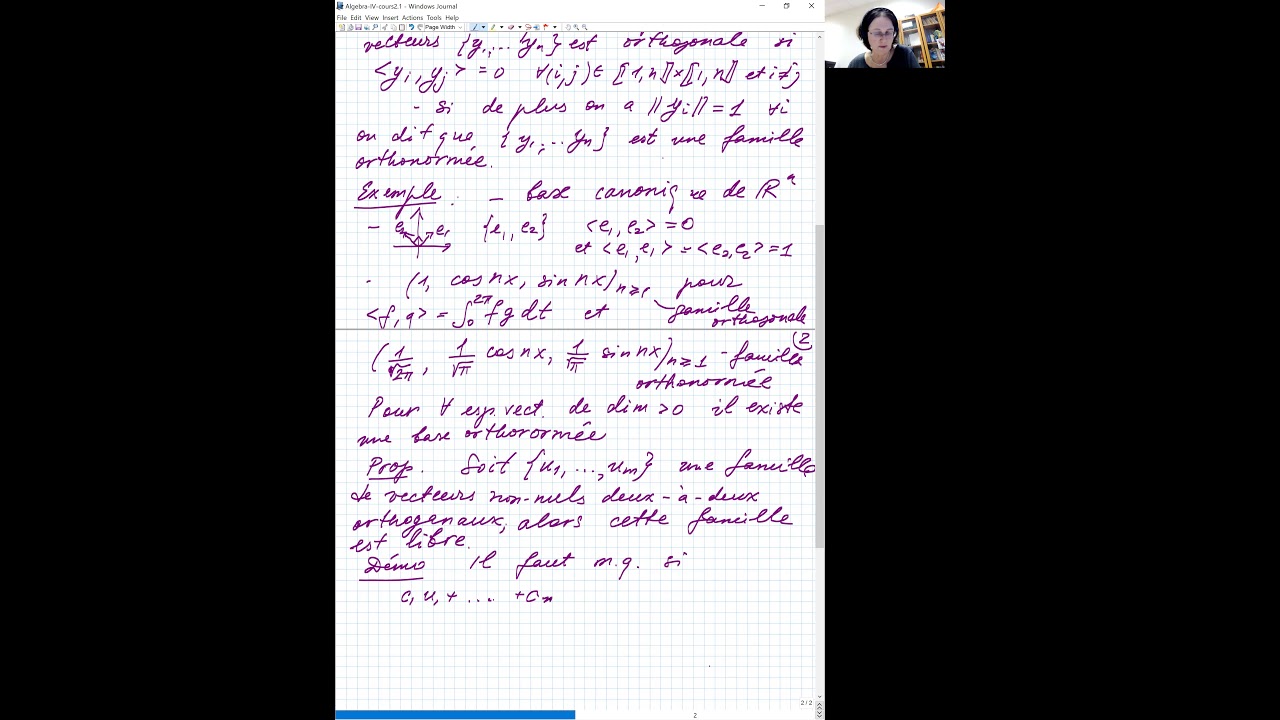 Algebra-IV-cours2.1 - Windows Journal
File Edit View Insert Actions Tools Help
Page Width
vecteurs {y1,...yn} est orthogonale si
<yi, yj> = 0 ∀(i,j) ∈ ⟦1,n⟧×⟦1,n⟧ et i≠j
- si de plus on a ||yi|| = 1 ∀i
on dit que {y1,...yn} est une famille
orthonormée.
Exemple : - base canonique de ℝⁿ
- e2 e1 {e1, e2} <e1, e2> = 0
et <e1, e1> = <e2, e2> = 1
- (1, cos nx, sin nx)n≥1 pour
<f, g> = ∫₀^2π f g dt et famille
orthogonale
2
(1/√2π, 1/√π cos nx, 1/√π sin nx)n≥1 - famille
orthonormée
Pour ∀ esp. vect. de dim > 0 il existe
une base orthorormée
Prop. Soit {u1, ..., um} une famille
de vecteurs non-nuls deux-à-deux
orthoganaux, alors cette famille
est libre.
Démo Il faut m.q. si
c1 u1 + .... + cm
2 / 2
2